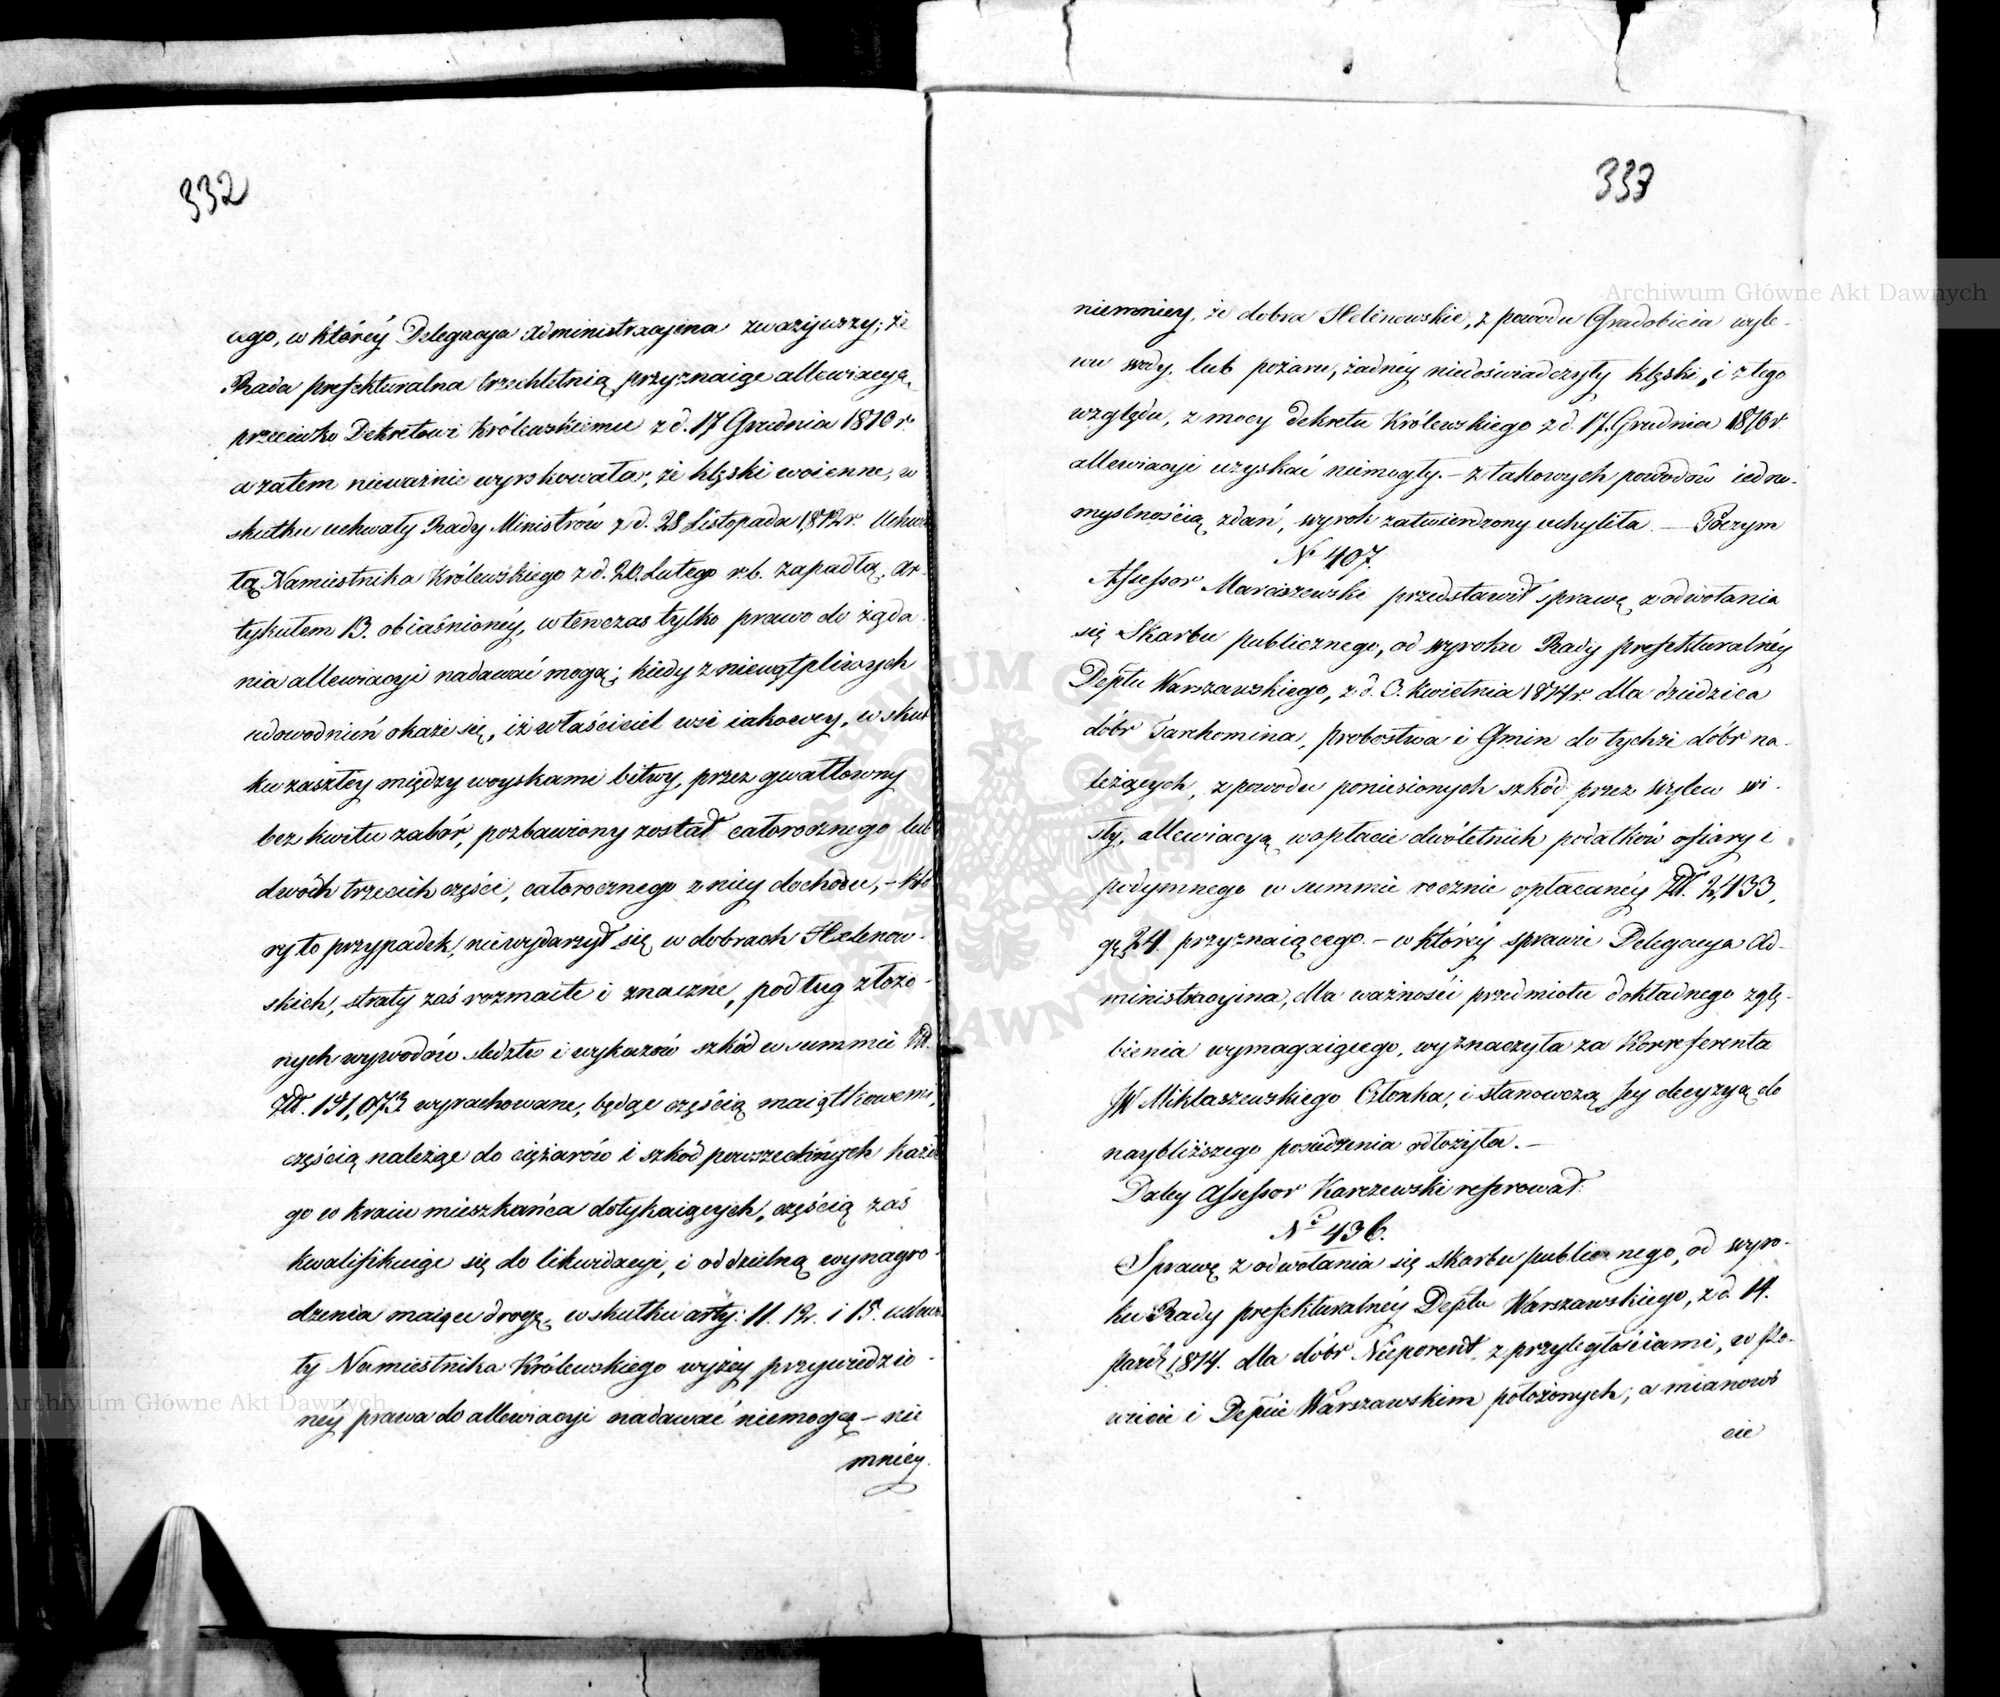 332
cego, w któréy Delegacya Administracyina zważywszy; że
Rada prefekturalna trzechletnią przyznaiąc allewiacyą,
przeciwko Dekretowi Królewskiemu z d. 17 Grudnia 1810 r
a zatem nieważnie wyrokowała, że klęski woienne, w
skutku uchwały Rady Ministrów z d. 28 Listopada 1812 r. Uchwa
łą Namiestnika Królewskiego z d. 20. Lutego r. b. zapadłą, Ar-
tykułem 13. obiaśnionéy, w tenczas tylko prawo do żąda
nia allewiacyi nadawać mogą; kiedy z niewątpliwych
udowodnień okaże się, iż właściciel wsi iakowey, w skut
ku zaszłey między woyskami bitwy, przez gwałtowny
bez kwitu zabór, pozbawiony został całorocznego lub
dwóch trzecich części, całorocznego z niey dochodu, – któ
ry to przypadek, niewydarzył się w dobrach Helenow-
skich, straty zaś rozmaite i znaczne, podług złożo-
nych wywodów śledztw i wykazów szkód w summie
Złł. 141,073 wyrachowane, będąc częścią maiątkowemi,
częścią należąc do ciężarów i szkód powszechnych każde
go w kraiu mieszkańca dotykaiących, częścią zaś
kwalifikuiąc się do likwidacyi, i oddzielną wynagro-
dzenia maiące drogę, w skutku arty: 11. 12. i 15. uchwa
ły Namiestnika Królewskiego wyżey przywiedzio-
néy prawa do allewiacyi nadawać niemogą – nie
mniéy.
333
niemniéy, że dobra Helenowskie, z powodu Gradobicia wyle-
wu wody, lub pożaru, żadnéy niedoświadczyły klęski, i z tego
względu, z mocy dekretu Królewskiego z d. 17. Grudnia 1810 r.
allewiacyi uzyskać niemogły. – z takowych powodów iedno-
myslnością zdań, wyrok zatwierdzony uchyliła. — Poczym
No 407.
Assessor Marciszewski przedstawił sprawę z odwołania
się Skarbu publicznego, od wyroku Rady prefekturalnéy
Deptu Warszawskiego, z d. 3. kwietnia 1814 r. dla dziedzica
dóbr Tarchomina, probostwa i Gmin do tychże dóbr na-
leżących, z powodu poniesionych szkód przez wylew wi-
sły, allewiacyą w opłacie dwóletnich podatków ofiary i
podymnego w summie rocznie opłacanéy Złł. 2,433,
gr 24. przyznaiącego. – w któréy sprawie Delegacya Ad-
ministracyina, dla ważności przedmiotu dokładnego zgłę-
bienia wymagaiącego, wyznaczyła za Korreferenta
JW Miklaszewskiego Członka, i stanowczą Jey decyzyą do
naybliższego posiedzenia odłożyła. –
Daley Assessor Karczewski referował:
No 436.
Sprawę z odwołania się skarbu publicznego, od wyro-
ku Rady prefekturalnéy Deptu Warszawskiego, z d. 14.
1814. dla dóbr Nieporent z przyległościami, w Po-
wiecie i Depcie Warszawskim położonych, a mianowi
cie
Archiwum Główne Akt Dawnych
Archiwum Główne Akt Dawnych